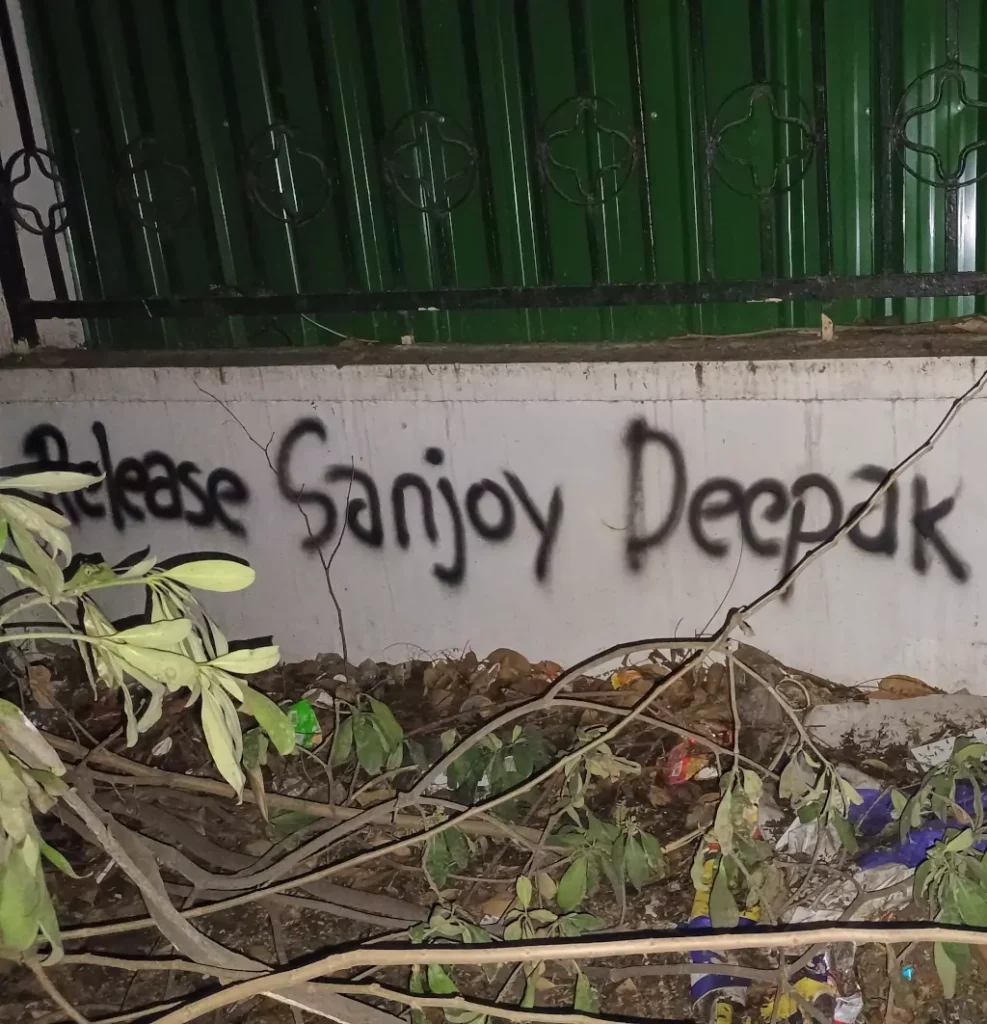 Release Sanjoy Deepak